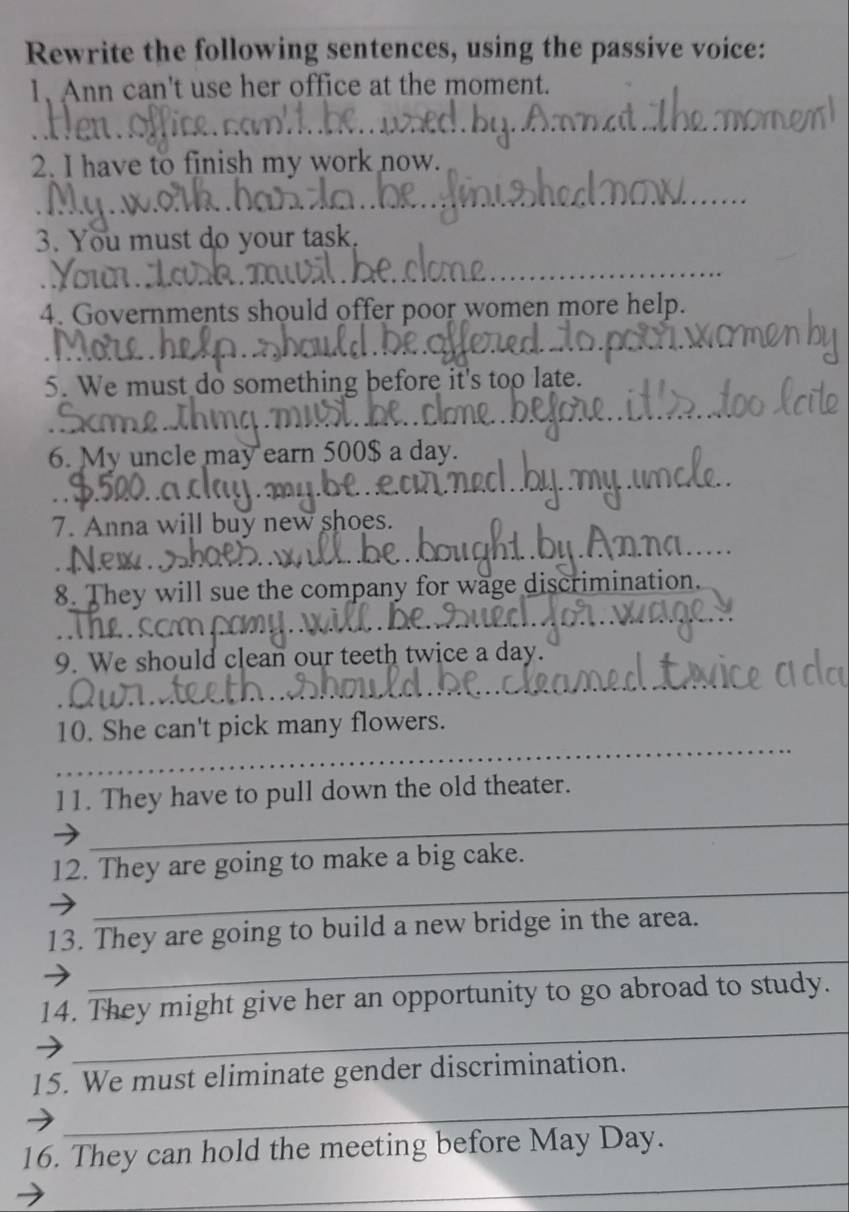 Rewrite the following sentences, using the passive voice:
1. Ann can't use her office at the moment.
Her office can't be used by Ann at the moment
2. I have to finish my work now.
My work has to be finished now
3. You must do your task.
Your task must be done
4. Governments should offer poor women more help.
More help should be offered to poor women by
5. We must do something before it's too late.
Some thing must be done before it's too late
6. My uncle may earn 500$ a day.
$500 a day my be earned by my uncle
7. Anna will buy new shoes.
New shoes will be bought by Anna
8. They will sue the company for wage discrimination.
The company will be sued for wage
9. We should clean our teeth twice a day.
Our teeth should be cleaned twice a da
10. She can't pick many flowers.
11. They have to pull down the old theater.
→
12. They are going to make a big cake.
→
13. They are going to build a new bridge in the area.
→
14. They might give her an opportunity to go abroad to study.
→
15. We must eliminate gender discrimination.
→
16. They can hold the meeting before May Day.
→